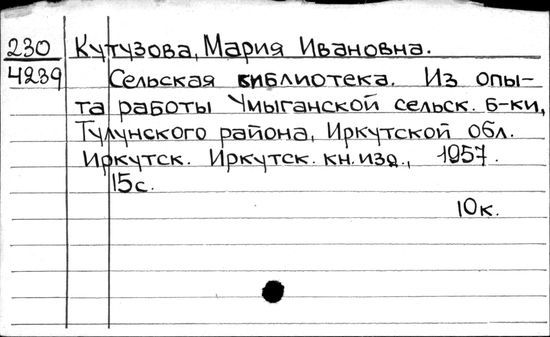 230 Кутузова, Мария Ивановна.
4239 Сельская библиотека. Из опы-
та работы Умыганской сельск. б-ки,
Тулунского района, Иркутской обл.
Иркутск. Иркутск. кн. изд., 1957.
15с.
10к.